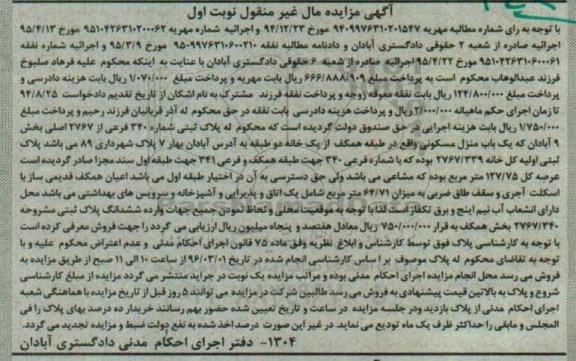 آگهی مزایده مال غیر منقول نوبت اول
با توجه به رای شماره مطالبه مهریه ۹۴۰۹۹۷۶۳۱۰۲۰۱۵۴۷ - ۹۴/۱۲/۲۳ و اجرائیه شماره مهریه ۹۵۱۰۴۲۶۳۱۰۲۰۰۰۶۲ - ۹۵/۴/۱۳
اجرائیه صادره از شعبه ۲ حقوقی دادگستری آبادان و دادنامه مطالبه نفقه ۹۵۰۹۹۷۶۳۱۰۶۰۰۲۱۰ - ۹۵/۳/۹ و اجرائیه نفقه
۹۵۱۰۴۲۶۳۱۰۶۰۰۰۶۱ - ۹۵/۴/۲۲ اجرائیه صادره از شعبه ۶ حقوقی دادگستری آبادان با عنایت به اینکه محکوم علیه فرهاد صلبوخ
فرزند عبدالوهاب محکوم است به پرداخت مبلغ ۶۶۶/۸۸۸/۹۰۹ ریال بابت مهریه و پرداخت مبلغ ۱/۰۷۰/۰۰۰ ریال بابت هزینه دادرسی و
پرداخت مبلغ ۱۲۴/۸۰۰/۰۰۰ ریال بابت نفقه معوقه زوجه و پرداخت نفقه فرزند مشترک به نام اشکان از تاریخ تقدیم دادخواست ۹۴/۸/۲۵
تا زمان اجرای حکم ماهیانه ۲/۰۰۰/۰۰۰ ریال و پرداخت هزینه دادرسی بابت نفقه در حق محکوم له آذر قربانیان فرزند رحیم و پرداخت مبلغ
۱/۷۵۰/۰۰۰ ریال بابت هزینه اجرایی در حق صندوق دولت گردیده است که محکوم له پلاک ثبتی شماره ۳۴۰ فرعی از ۲۷۶۷ اصلی بخش
۹ آبادان که یک باب منزل مسکونی واقع در طبقه همکف از یک خانه دو طبقه به آدرس آبادان بهار ۷ پلاک شهرداری ۸۹ می باشد پلاک
ثبتی اولیه کل خانه ۲۷۶۷/۳۳۹ بوده که با شماره فرعی ۳۴۰ جهت طبقه همکف و فرعی ۳۴۱ جهت طبقه اول سند مجزا صادر گردیده است
عرصه کل ۱۲۷/۷۵ متر مربع بوده که مشاعی می باشد ولی حق دسترسی به آن در اختیار طبقه اول می باشد اعیان همکف قدیمی ساز با
اسکلت آجری و سقف طاق ضربی به میزان ۶۴/۷۱ متر مربع شامل یک اتاق و پذیرایی و آشپزخانه و سرویس های بهداشتی می باشد محل
دارای انشعاب آب نیم اینچ و برق تکفاز است لذا با توجه به موقعیت محلی و لحاظ نمودن جمیع جهات وارده ششدانگ پلاک ثبتی مشروحه
۲۷۶۷/۳۴۰ بخش همکف به قرار ۷۵۰/۰۰۰/۰۰۰ ریال معادل هفتصد و پنجاه میلیون ریال ارزیابی می گردد را جهت فروش معرفی کرده است
با توجه به کارشناسی پلاک فوق توسط کارشناس و ابلاغ نظریه وفق ماده ۷۵ قانون اجرای احکام مدنی و عدم اعتراض محکوم علیه و با
توجه به تقاضای محکوم له پلاک موصوف بر اساس کارشناسی انجام شده در تاریخ ۹۶/۰۳/۰۱ از ساعت ۱۰ الی ۱۱ صبح از طریق مزایده به
فروش می رسد محل انجام مزایده اجرای احکام مدنی بوده و مراتب مزایده یک نوبت در جراید منتشر می گردد مزایده از مبلغ کارشناسی
شروع و پلاک به بالاترین قیمت پیشنهادی به فروش می رسد طالبین شرکت در مزایده می توانند ۵ روز قبل از تاریخ مزایده با هماهنگی شعبه
اجرای احکام مدنی از پلاک بازدید ودر جلسه مزایده در ساعت و تاریخ تعیین شده حضور بهم رسانند خریدار ده درصد بهای پلاک را فی
المجلس و مابقی را حداکثر ظرف یک ماه تودیع می نماید. در غیر این صورت درصد اخذ شده به نفع دولت ضبط و مزایده تجدید می گردد.
۱۳۰۴- دفتر اجرای احکام مدنی دادگستری آبادان